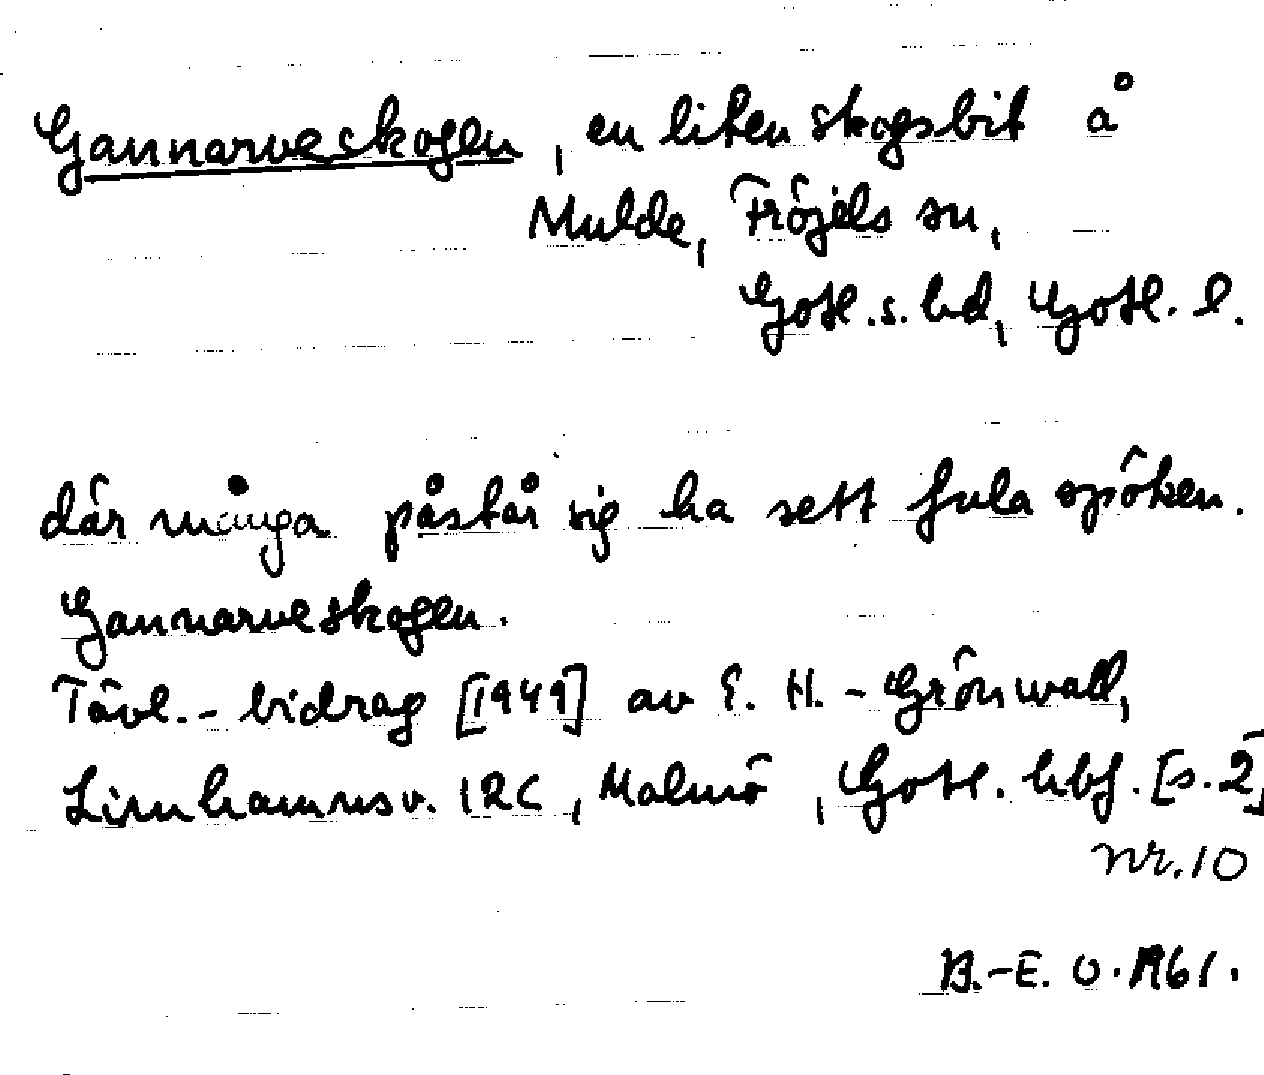 Gannarveskogen, en liten skogsbit å
Mulde, Fröjels sn,
Gotl. s. hd, Gotl. l.
där många påstår sig ha sett fula spöken.
Gannarveskogen.
Tävl.-bidrag [1949] av E. H.-Grönwall,
Limhamnsv. 12C, Malmö, Gotl. hbf. [s. 2]
nr. 10
B.-E. O. 1961.